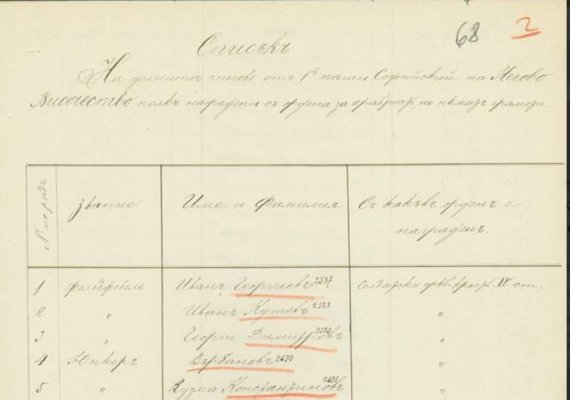 68 2
Списькъ
На долнитѣ чинове отъ 1й пѣши Софийский на Негово
Височество полкъ наградени съ ордена за храбрость но нѣматъ грамоти.
№ по редъ
Звание
Име и Фамилия
Съ какъвъ орденъ е
награденъ.
1 фелдфебель Иванъ Георгиевъ 2587 солдатски IV ст.
2 " Иванъ Кутевъ 2588 "
3 " Георги Димитровъ "
4 Юнкеръ Върбановъ 2590 "
5 " Кузма Константиновъ 2591 "